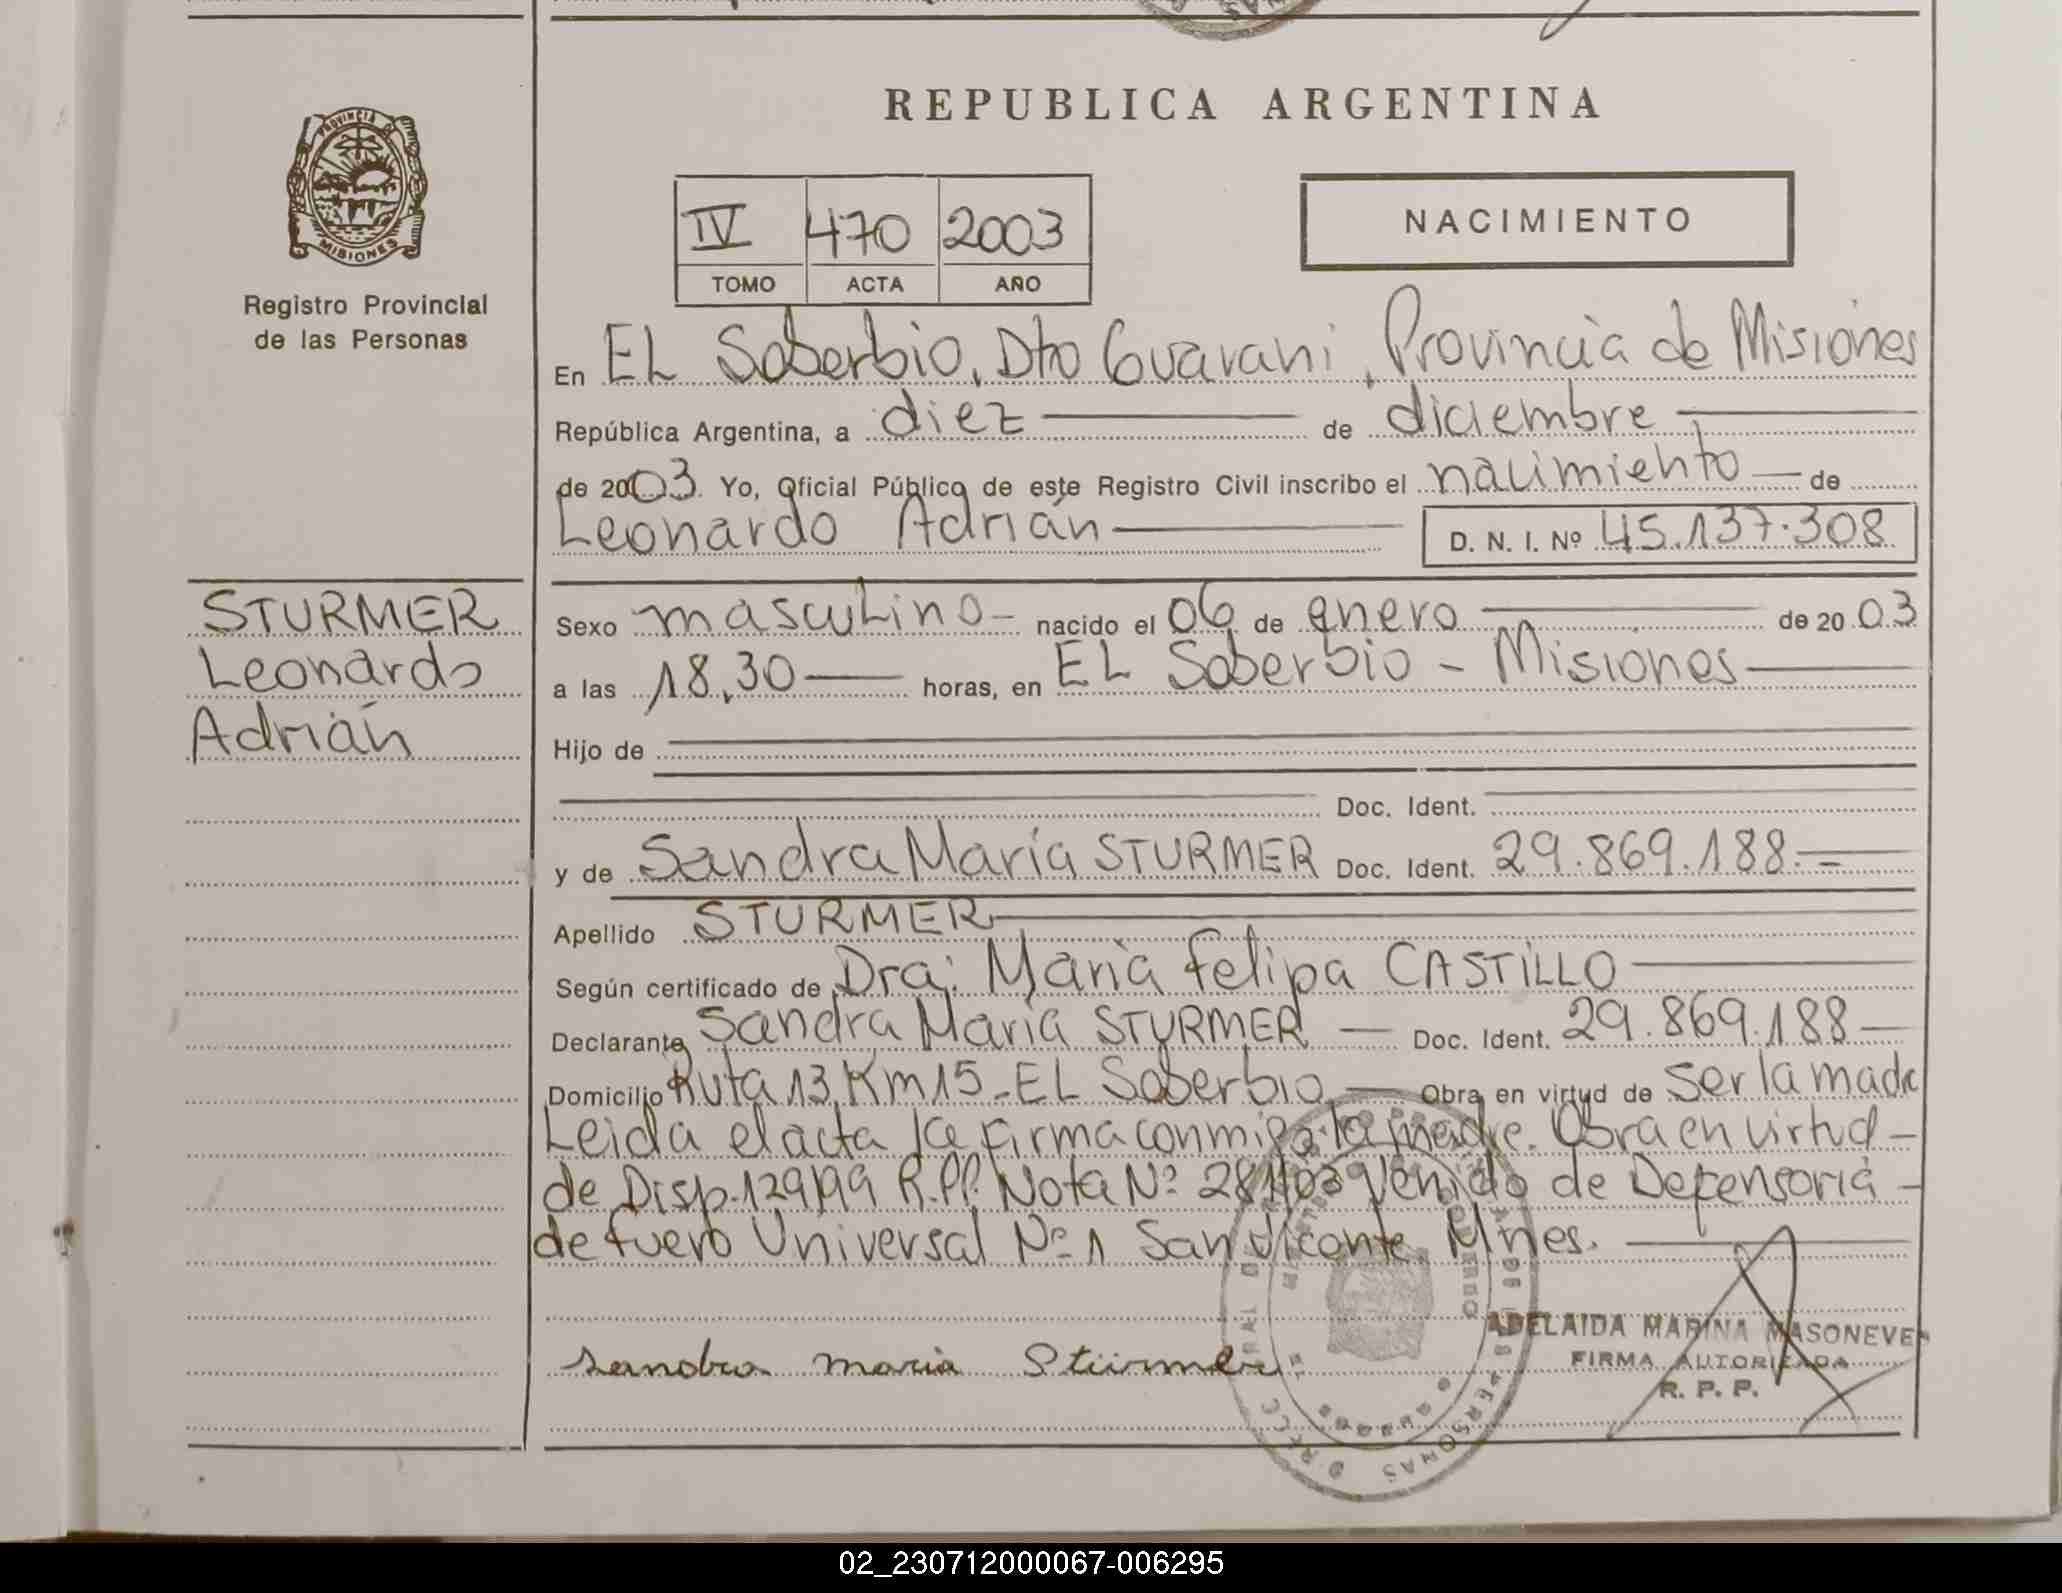 REPUBLICA ARGENTINA
PROVINCIA DE
MISIONES
Registro Provincial
de las Personas
IV 470 2003
TOMO ACTA AÑO
NACIMIENTO
En EL Soberbio, Dto Guarani, Provincia de Misiones
República Argentina, a diez de diciembre
de 2003. Yo, Oficial Público de este Registro Civil inscribo el nacimiento de
Leonardo Adrián D. N. I. Nº 45.137.308
STURMER
Leonardo
Adrián
Sexo masculino - nacido el 06 de enero de 2003
a las 18,30 horas, en EL Soberbio - Misiones
Hijo de
Doc. Ident.
y de Sandra María STURMER Doc. Ident. 29.869.188.
Apellido STURMER
Según certificado de Dra. María Felipa CASTILLO
Declarante Sandra María STURMER Doc. Ident. 29.869.188
Domicilio Ruta 13 Km 15 - EL Soberbio Obra en virtud de ser la madre
Leida el acta la firma conmigo la madre. Obra en virtud
de Disp. 129/99 R.P.P. Nota Nº 281/03 Venido de Defensoría
de fuero Universal Nº 1 San Vicente Mnes.
Sandra maria Stürmer
ADELAIDA MARINA MASONEVE
FIRMA AUTORIZADA
R. P. P.
02_230712000067-006295